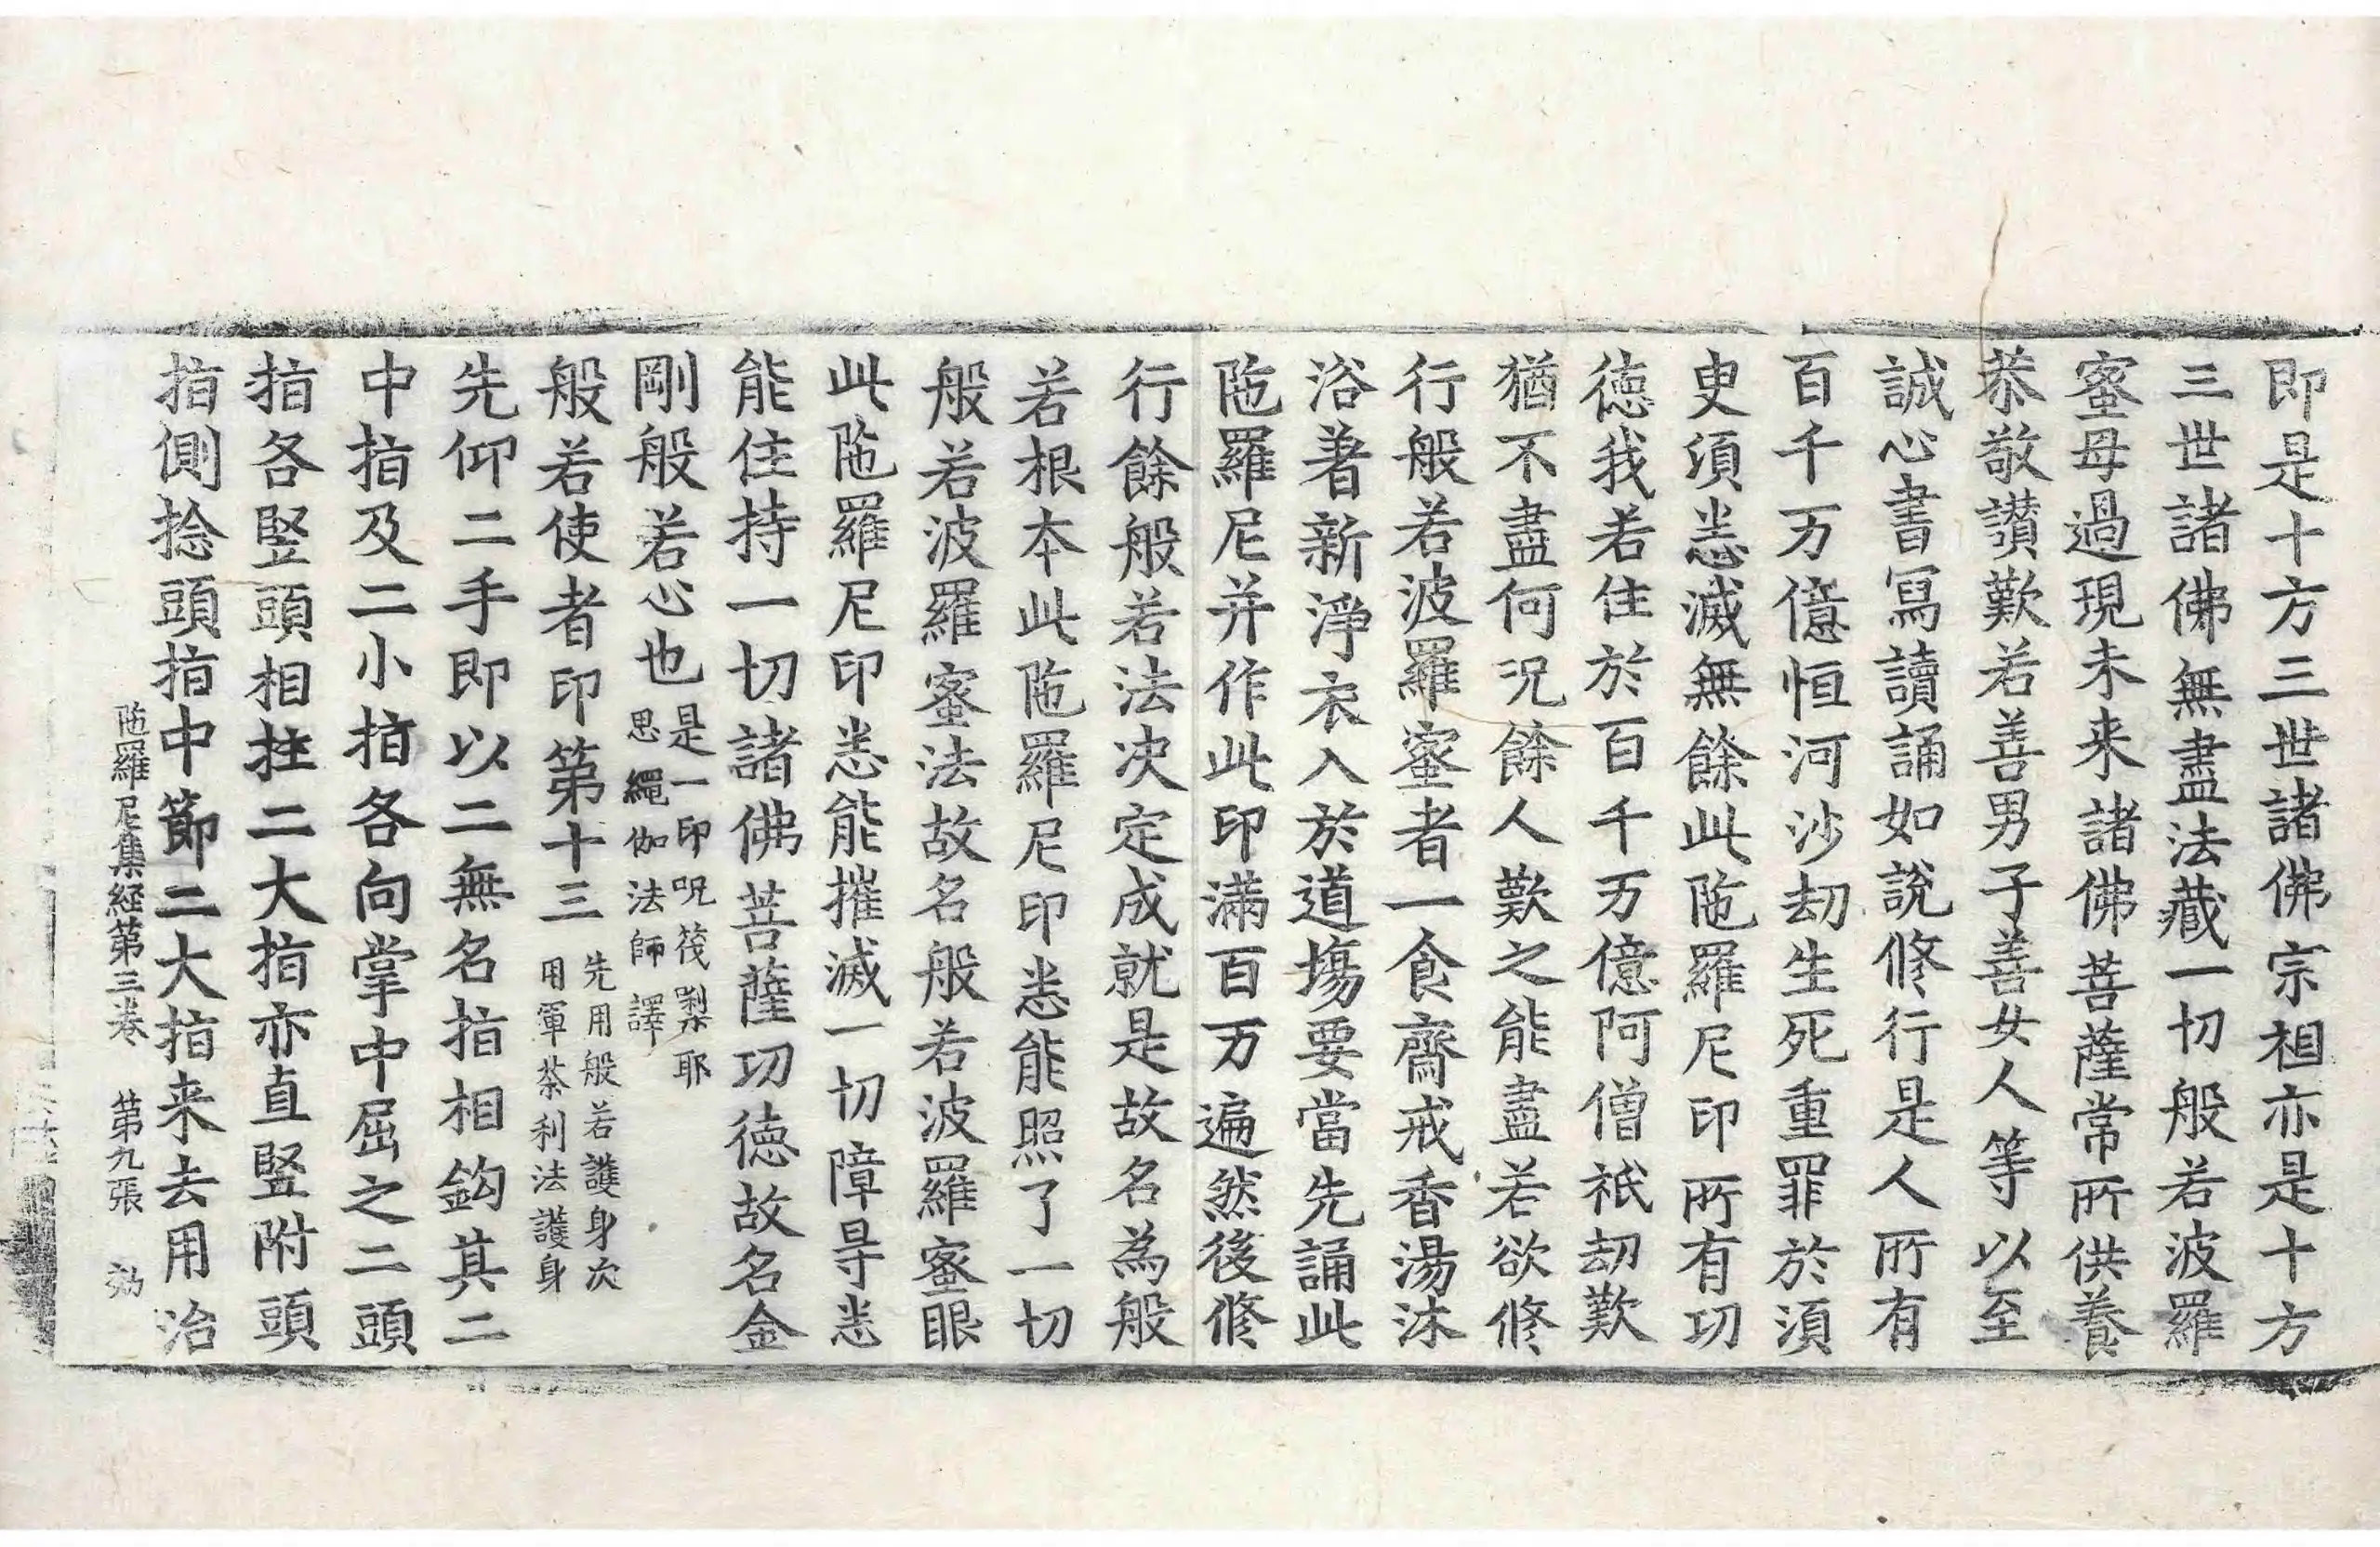 即是十方三世諸佛宗祖亦是十方
三世諸佛無盡法藏一切般若波羅
蜜母過現未来諸佛菩薩常所供養
恭敬讃歎若善男子善女人等以至
誠心書寫讀誦如說修行是人所有
百千万億恒河沙劫生死重罪於須
臾須恙滅無餘此陁羅尼印所有功
徳我若住於百千万億阿僧祇劫歎
猶不盡何況餘人歎之能盡若欲修
行般若波羅蜜者一食齋戒香湯沐
浴著新淨衣入於道場要當先誦此
陁羅尼并作此印滿百万遍然後修
行餘般若法決定成就是故名為般
若根本此陁羅尼印悉能照了一切
般若波羅蜜法故名般若波羅蜜眼
此陁羅尼印悉能摧滅一切障㝵悉
能住持一切諸佛菩薩功徳故名金
剛般若心也是一印呪筏㗚耶
思繩伽法師譯
般若使者印第十三先用般若護身次
用軍荼利法護身
先仰二手即以二無名指相鈎其二
中指及二小指各向掌中屈之二頭
指各竪頭相拄二大指亦直竪附頭
指側捻頭指中節二大指来去用治
陁羅尼集経第三卷 第九張